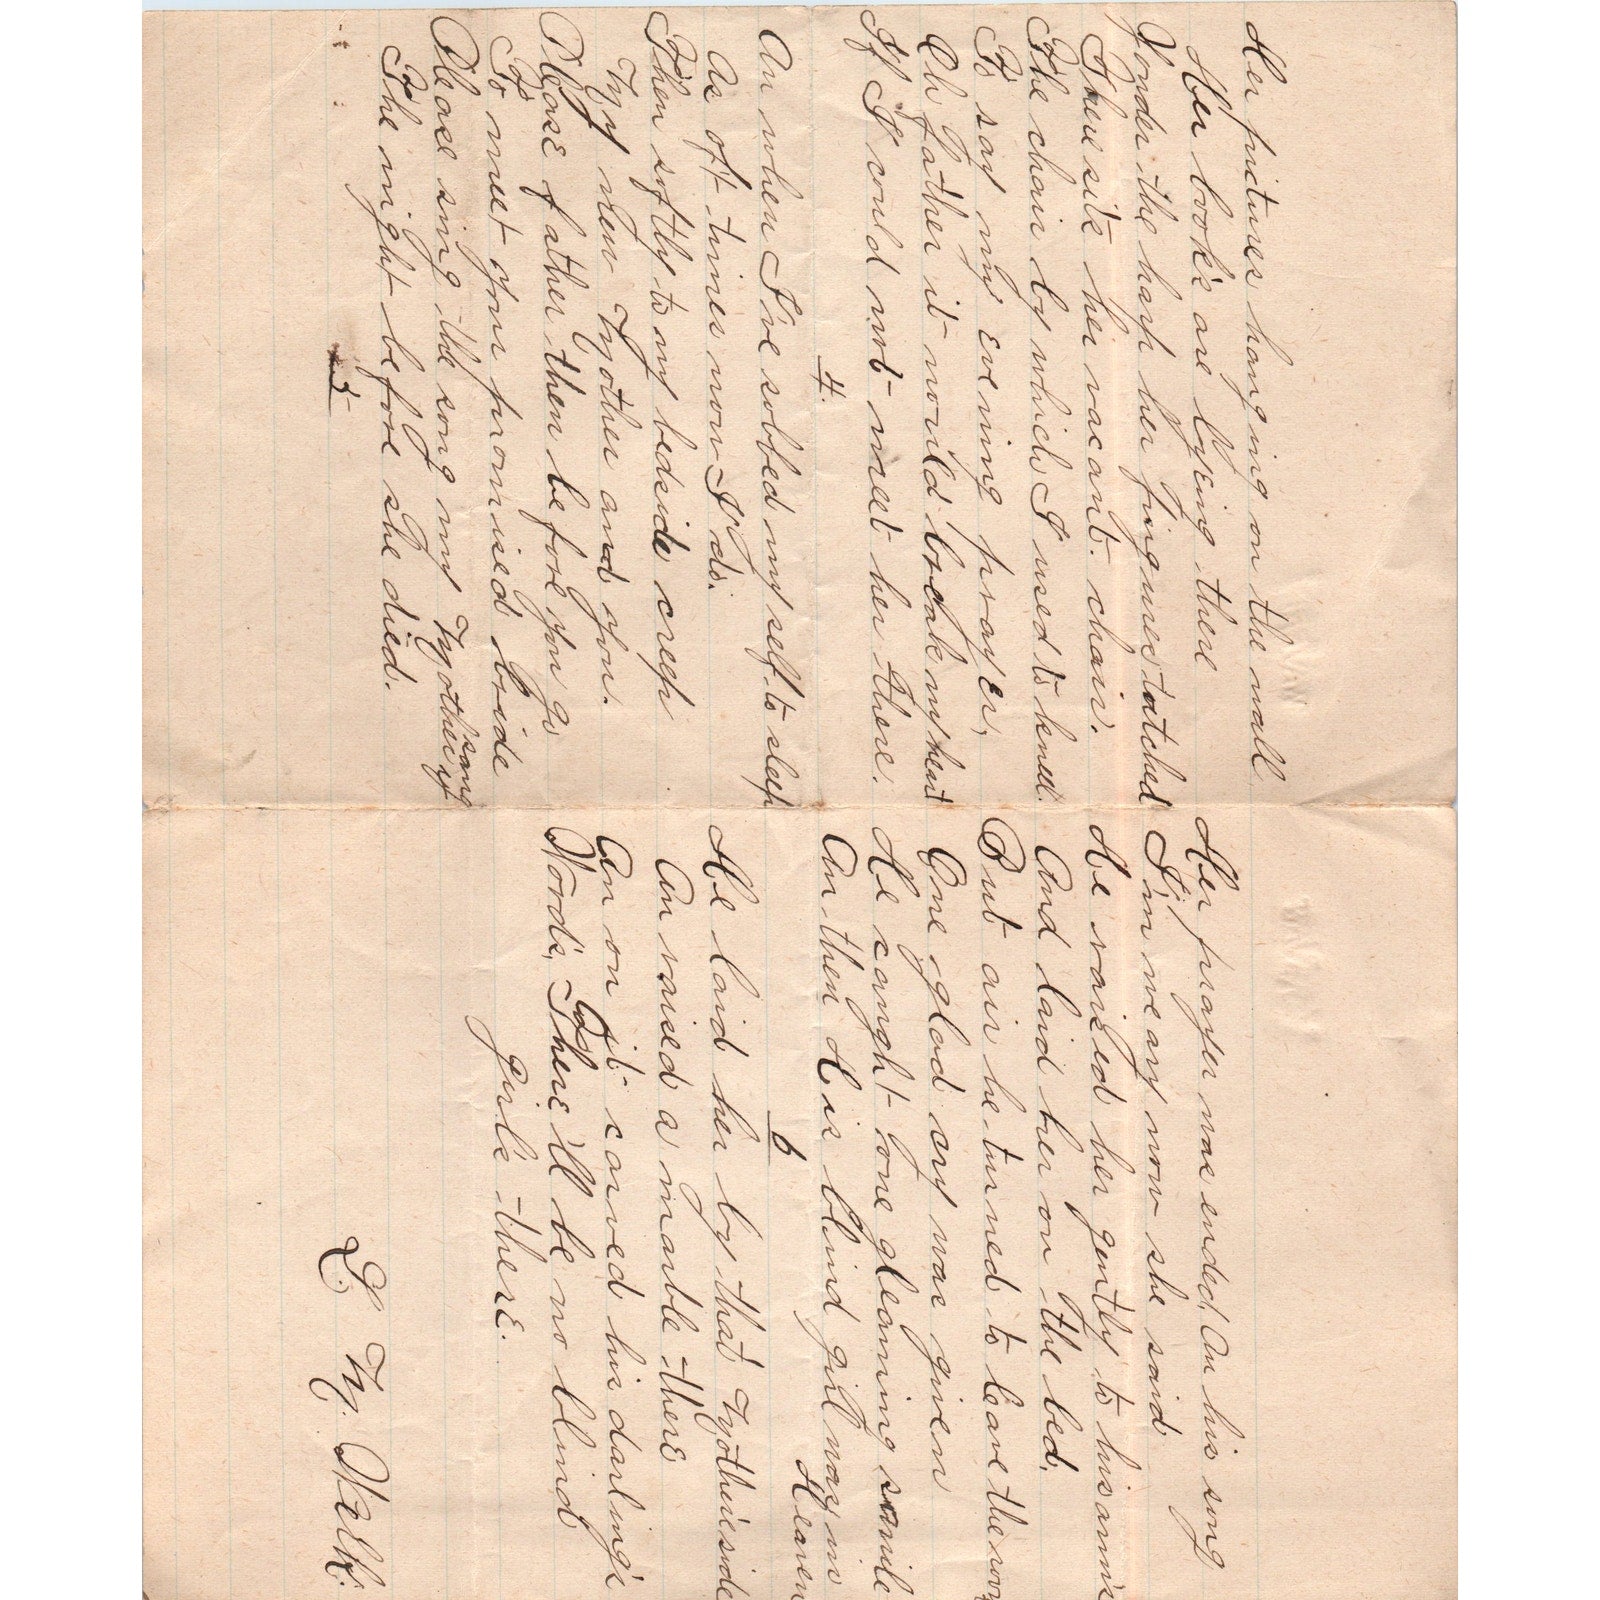 Her pictures hanging on the wall
Her book's are lyeing there
Yonder the harp her fingures touched
There sits her vacant. chair.
The chair by which I used to kneel.
To say my evening prayer,
Oh father it would break my heart
If I could not meet her there.
4.
An when I've sobbed my self to sleep
As oft times now I do.
Then softly to my bedside creep
My new Mother and you.
Please father then before you go
To meet your promised bride
Please sing the song my Mother sang
The night before she died.
5
Her prayer was ended, An his song
I'm weary now she said
He raised her gently to his arms
And laid her on the bed.
But air he turned to leave the room
One glad cry was given
He caught one gleaming smile
An then His blind girl was in
Heaven
6
He laid her by that Mother's side
An raised a marble there
An on it carved his darling's
Words, There'll be no blind
girls there.
L. M. Welk.